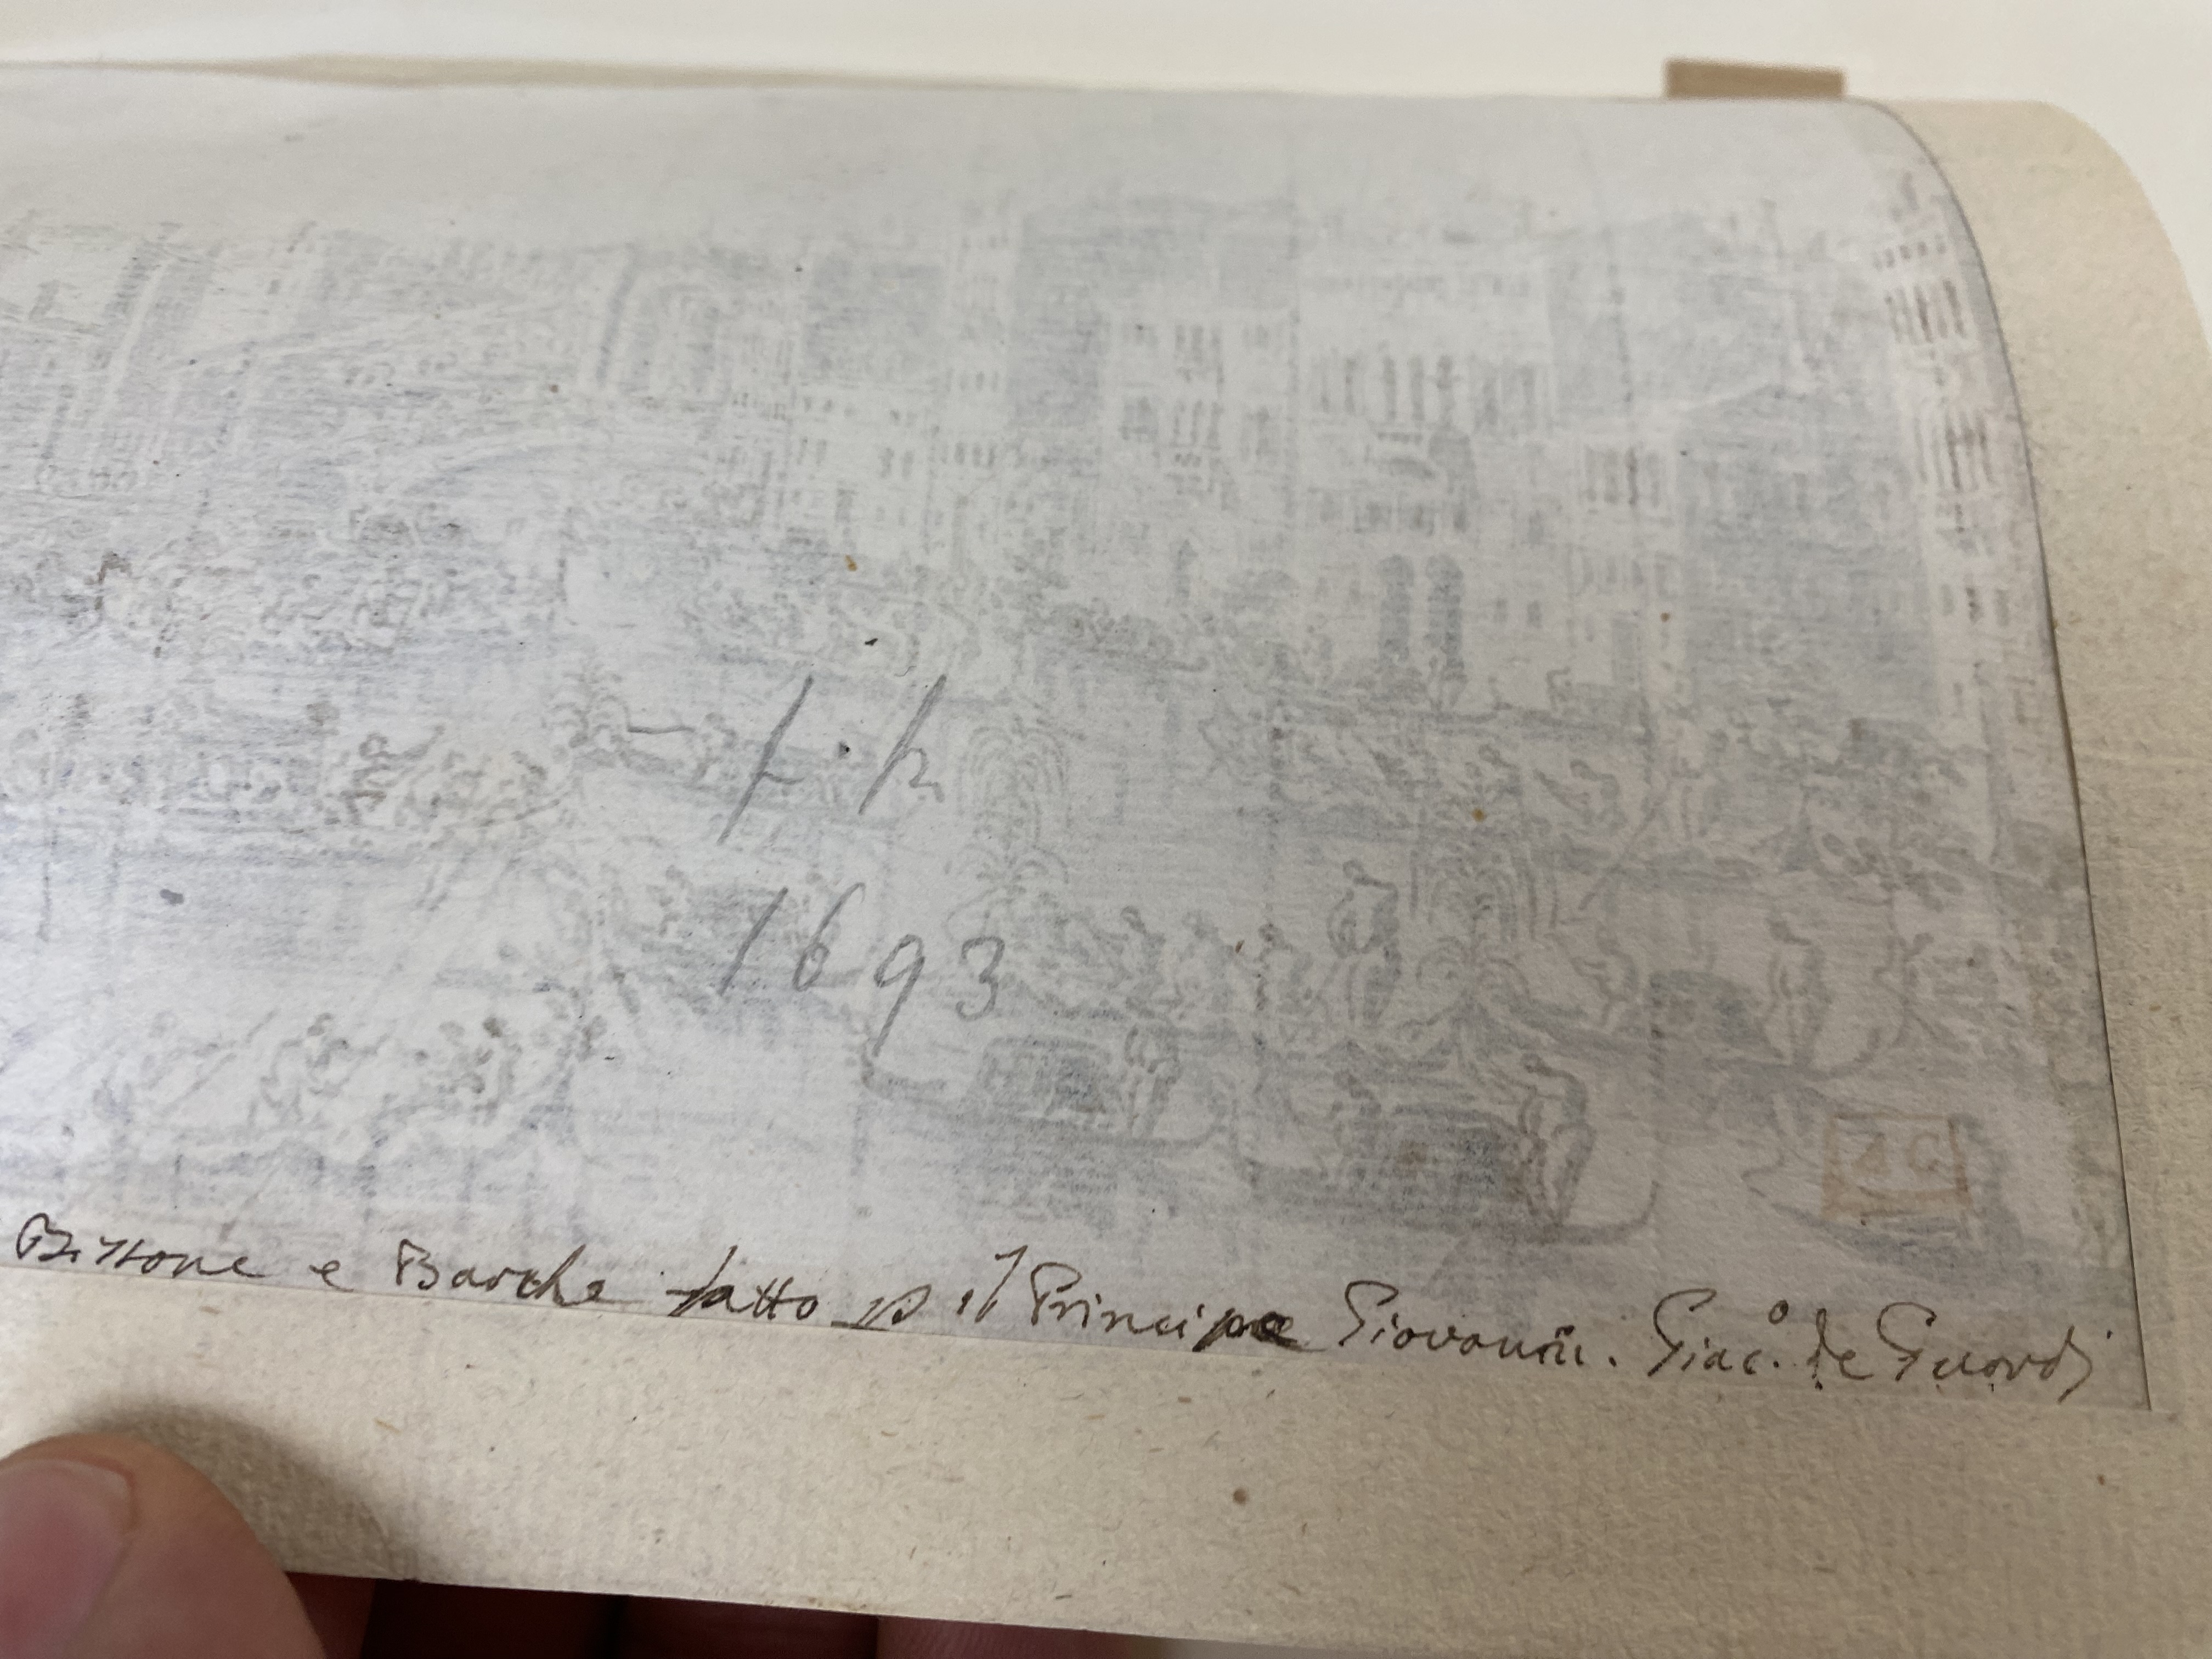 1693
Bissone e Barche fatto p il Principe Giovanni. Giac.º de Guardi